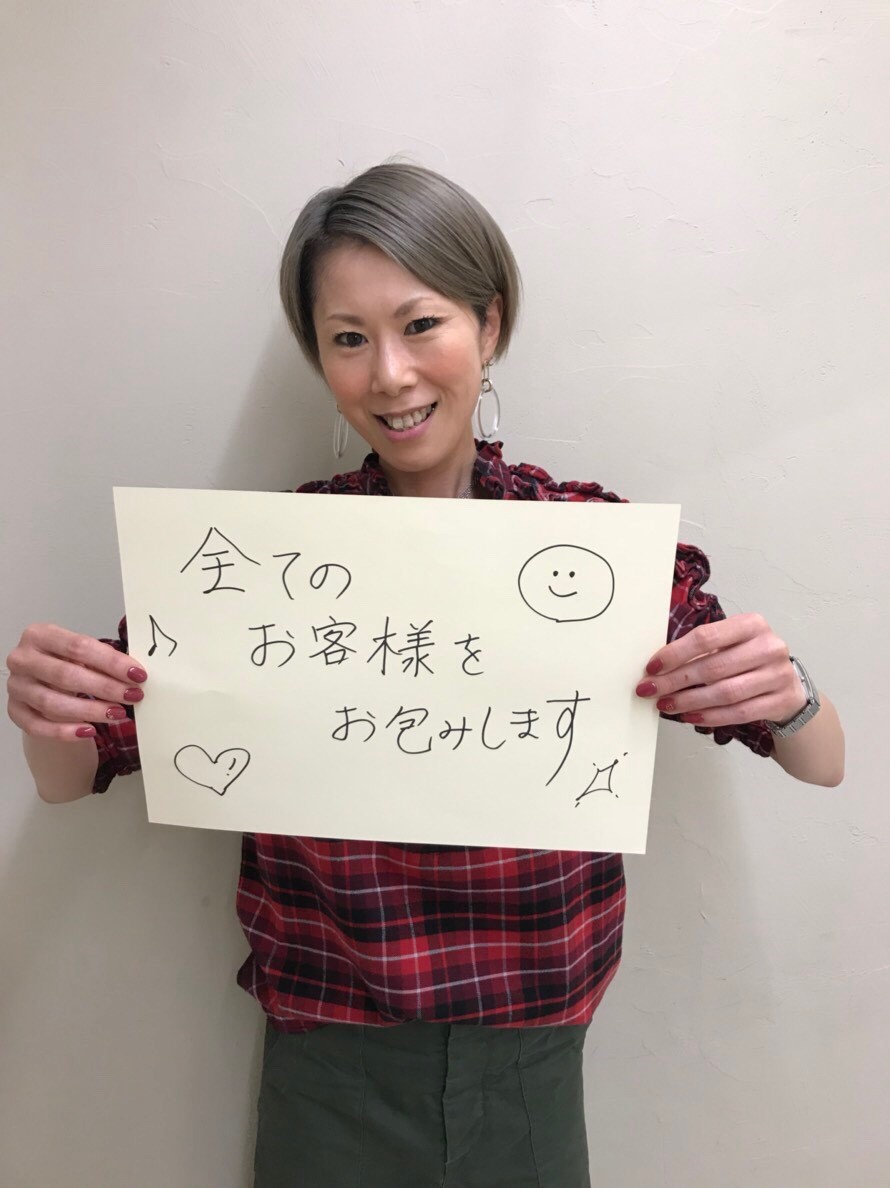 全ての
お客様を
お包みします